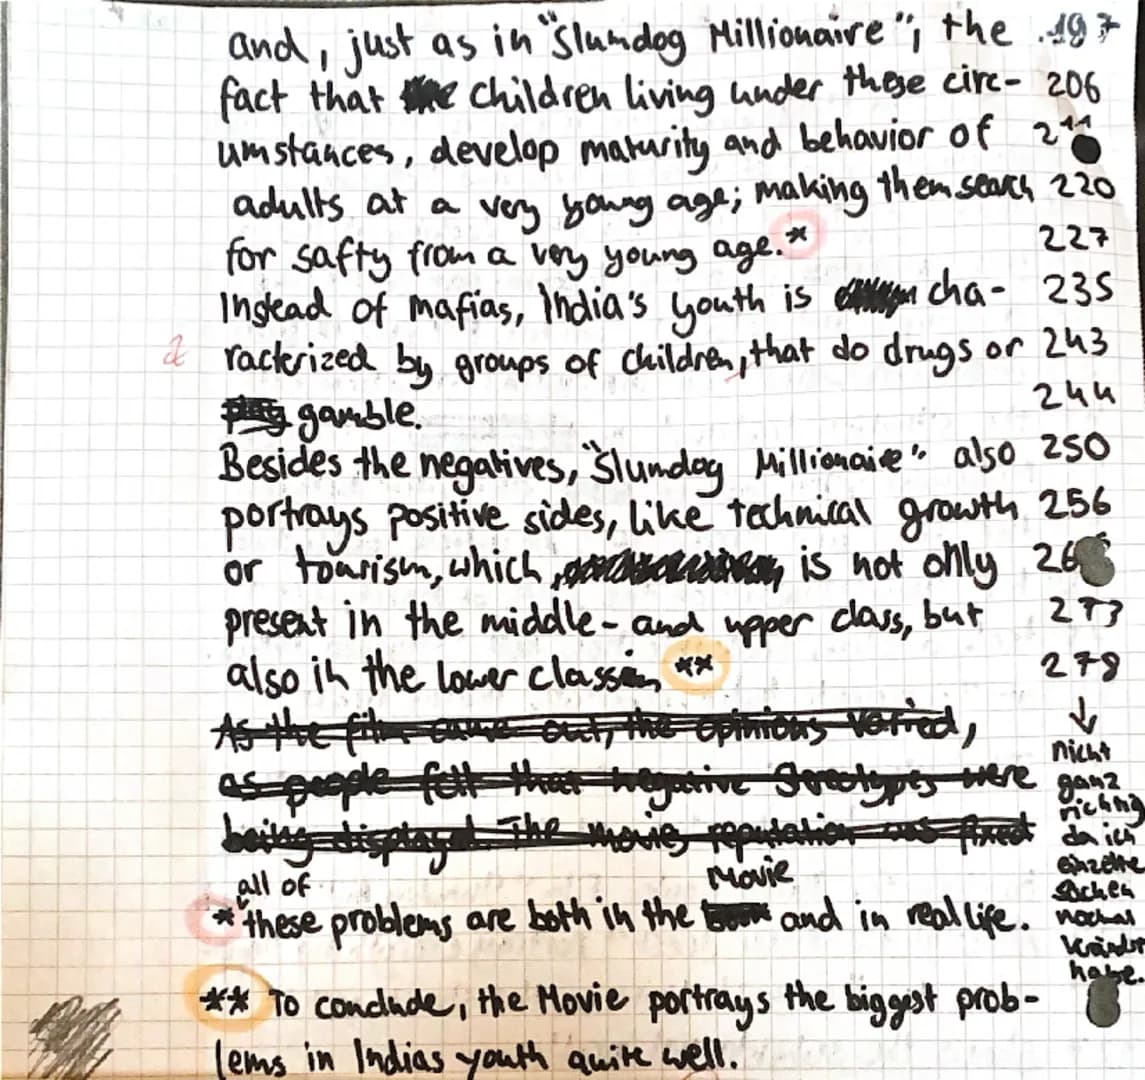 and, just as in "Slumdog Millionaire"; the .197
fact that children living under these circ- 206
umstances, develop maturity and behavior of 211
adults at a very young age; making them search 220
for safty from a very young age.* 227
Instead of mafias, India's youth is cha- 235
racterized by groups of children, that do drugs or 243
gamble. 244
Besides the negatives, "Slumdog Millionaire" also 250
portrays positive sides, like technical growth 256
or tourism, which, is not only 26
present in the middle- and upper class, but 273
also in the lower class ** 278
As the film came out, the opinions varied,
as people felt that negative stereotypes were
being displayed. The movies reputation was fixed
↓
nicht
ganz
richtig
da ich
einzelne
Sachen
nochmal
habe.
all of
Movie
* these problems are both in the and in real life.
** To conclude, the Movie portrays the biggest prob-
lems in Indias youth quite well.